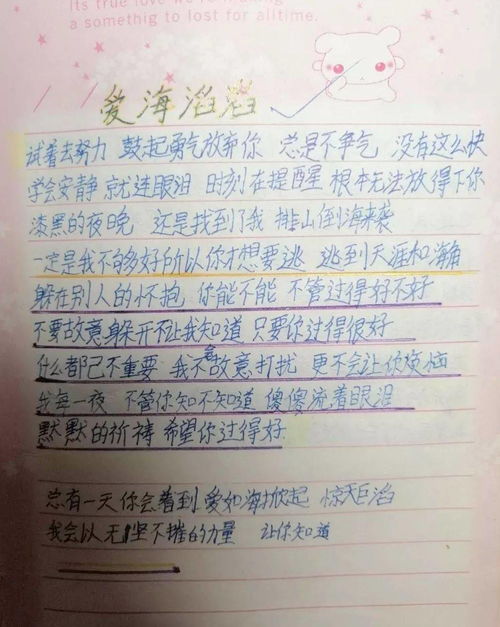 Its true love we're making
a something to lost for alltime.
爱海滔滔
试着去努力 鼓起勇气放弃你 总是不争气 没有这么快
学会安静 就连眼泪 时刻在提醒 根本无法放得下你
漆黑的夜晚 还是找到了我 排山倒海来袭
一定是我不够好所以你才想要逃 逃到天涯和海角
躲在别人的怀抱 你能不能 不管过得好不好
不要故意躲开不让我知道 只要你过得很好
什么都已不重要 我不会故意打扰 更不会让你烦恼
我每一夜 不管你知不知道 傻傻流着眼泪
默默的祈祷 希望你过得好
总有一天你会看到 爱如海掀起 惊天巨滔
我会以无坚不摧的力量 让你知道